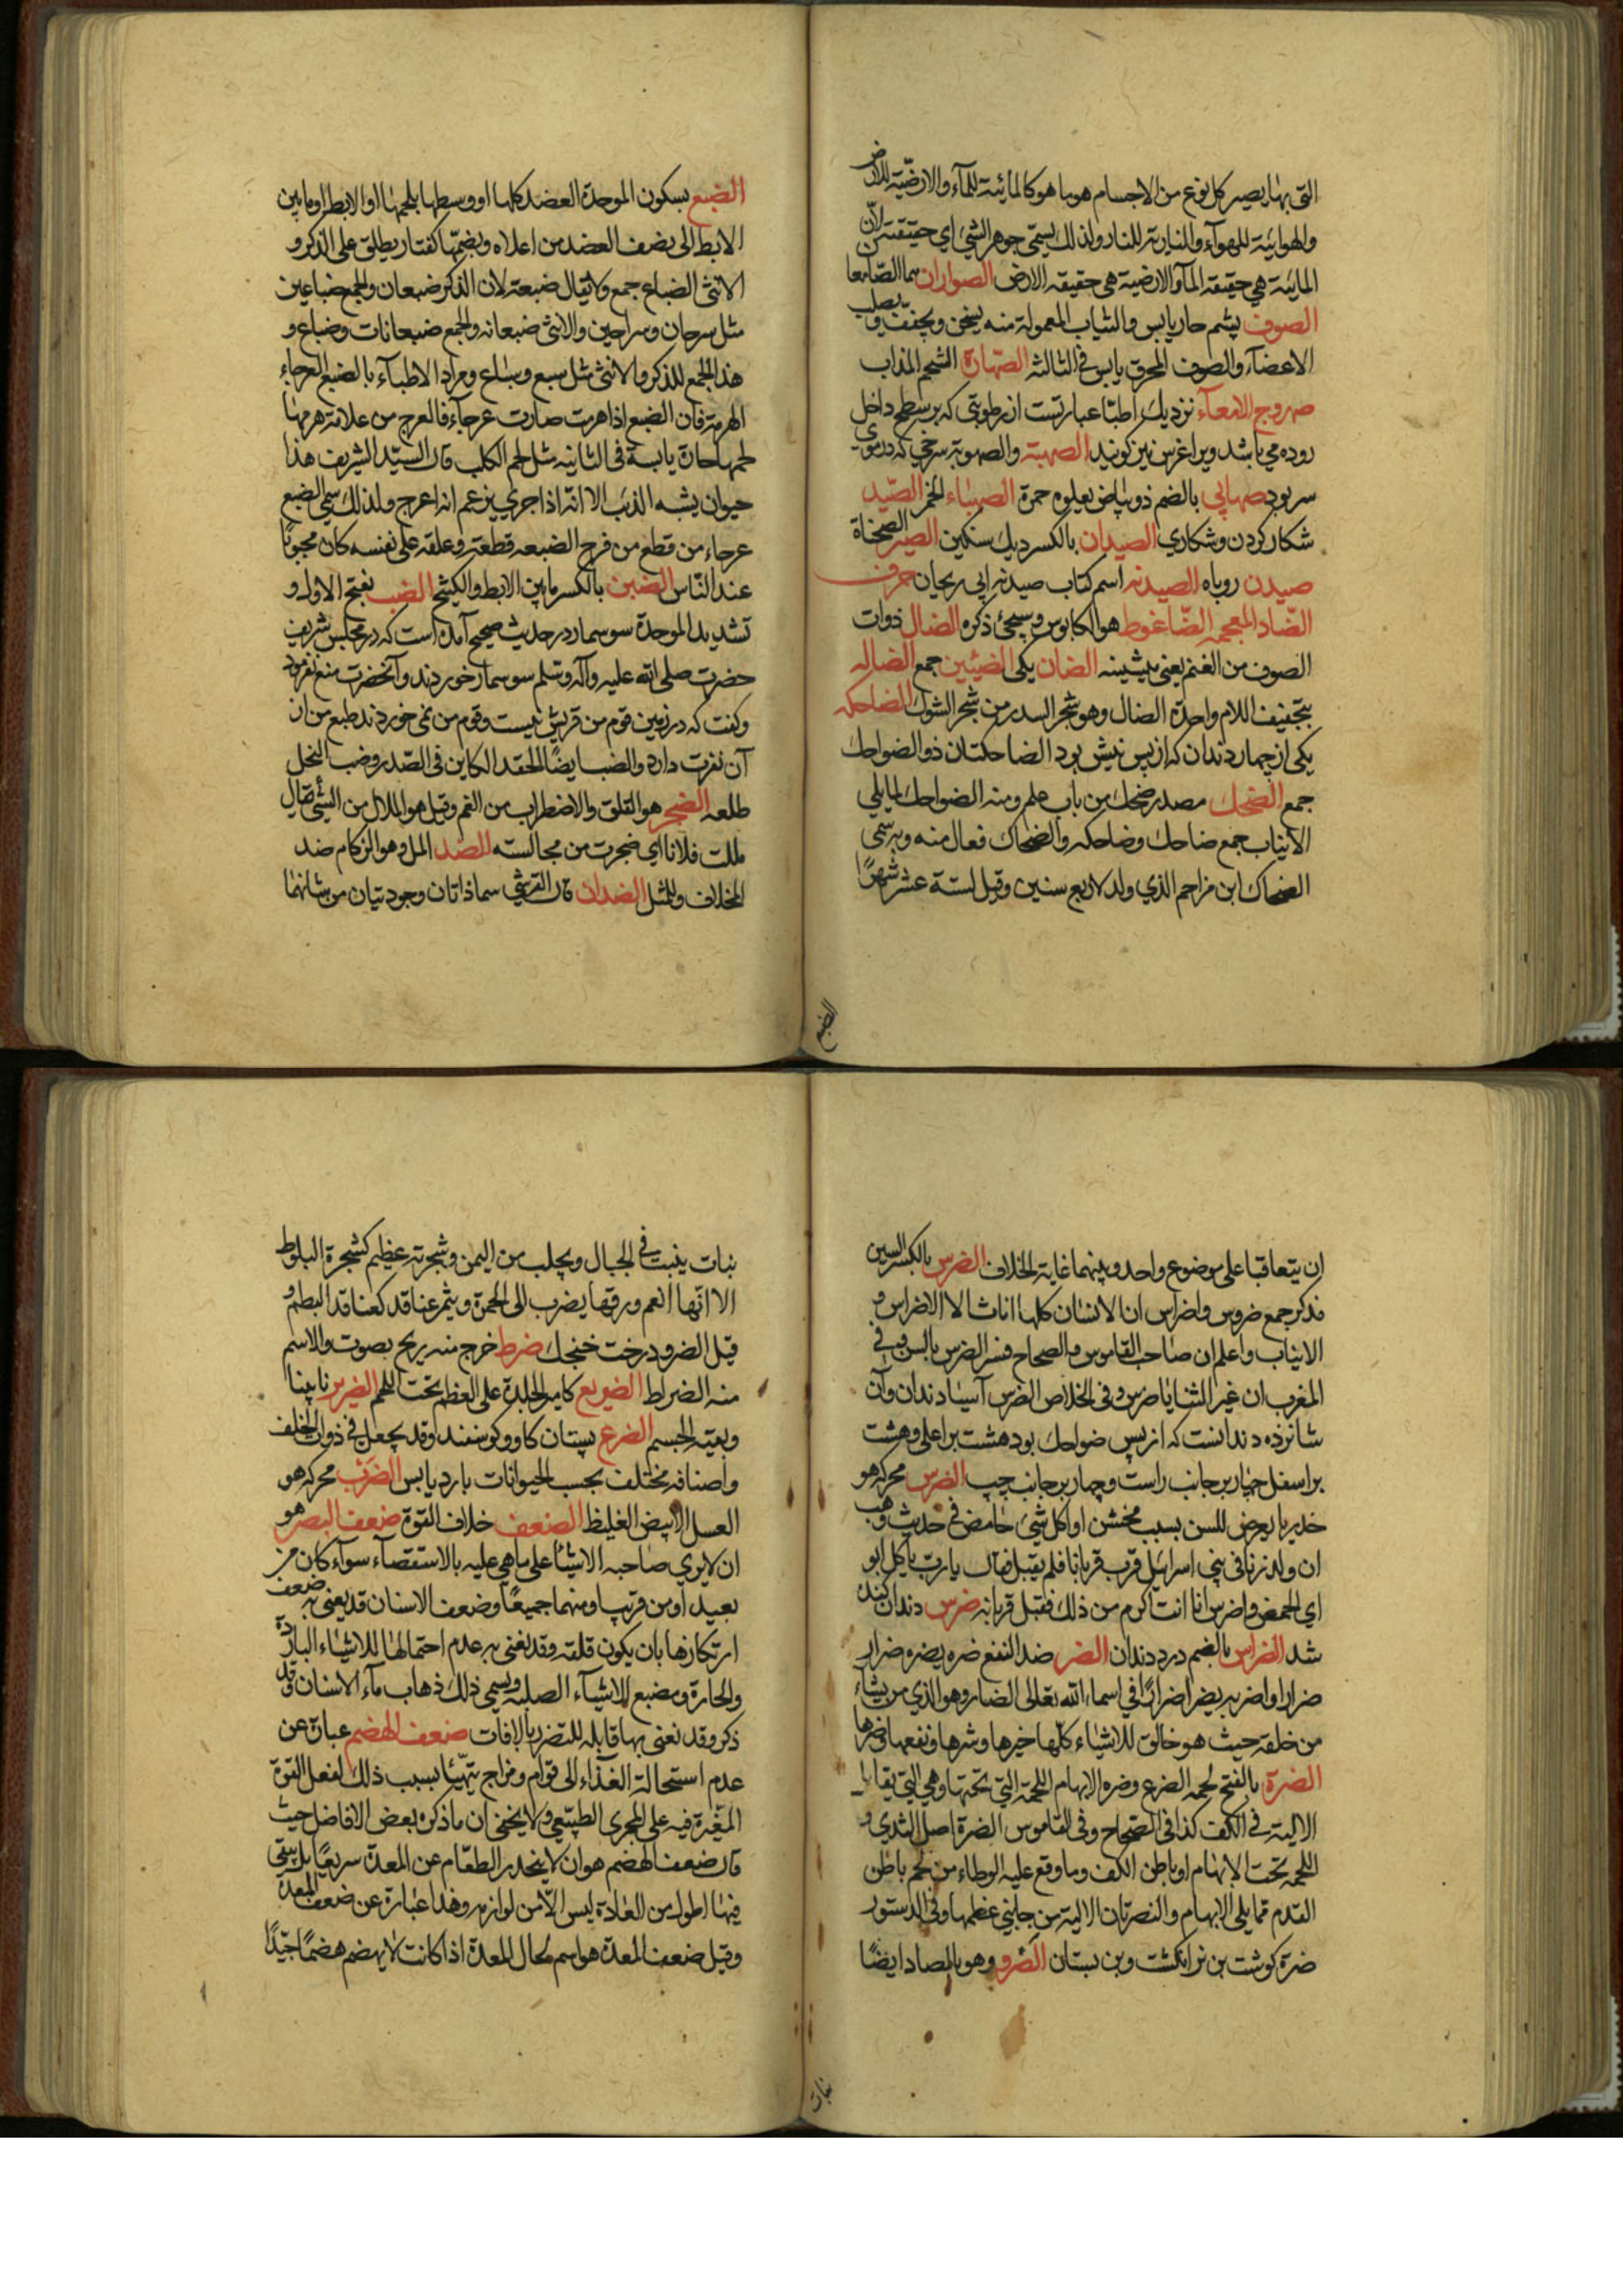 التی بها یصیر کل نوع من الاجسام هو ما هو کالمائیة للمآء والارضیّة للارض
والهوائیة للهوآء والناریة للنار ولذلك یسمّی جوهر الشیء ای حقیقته لانّ
المائیة هی حقیقة المآء والارضیة هی حقیقة الارض الصواران هما الصّامعا
الصوف پشم حار یابس والثیاب المعمولة منه یسخن ویجفف ویصلب
الاعضآء والصوف المحرق یابس فی الثالثة الصّهارة الشحم المذاب
صهروج الامعآء نزدیك اطبّا عبارتست از رطوبتی که بر سطح داخل
روده می باشد ویرا غرس نیز کویند الصهبة والصهوبة سرخی که در موی
سر بود صهابی بالضم ذو بیاض یعلوه حمرة الصهباء الخمر الصّید
شکار کردن وشکاری الصیدان بالکسر دیك سنکین الصیر الصحناة
صیدن روباه الصیدنه اسم کتاب صیدنه ابی ریحان حرف
الضّاد المعجمه الضّاغوط هو الکابوس وسیجیٔ ذکره الضال ذوات
الصوف من الغنم یعنی میشینه الضان یکی الضئین جمع الضاله
بتخفیف اللام واحدة الضال وهو شجر السدر من شجر الشوك الضاحکه
یکی از چهار دندان که از پس نیش بود الضاحکتان ذو الضواحك
جمع الضحك مصدر ضحك من باب علم ومنه الضواحك لما یلی
الانیاب جمع ضاحك وضاحکه والضحاك فعال منه وبه سمی
الضحاك ابن مزاحم الذی ولد لاربع سنین وقیل لستة عشر شهرًا
الضبع
الضبع بسکون الموحدة العضد کلها او وسطها بلحمها او الابط او ما بین
الابط الی نصف العضد من اعلاه وبضمّها کفتار یطلق علی الذکر و
الانثی الضباع جمع ولا یقال ضبعة لان الذکر ضبعان والجمع ضباعین
مثل سرحان وسراحین والانثی ضبعانه والجمع ضبعانات وضباع و
هذا الجمع للذکر والانثی مثل سبع وسباع ومراد الاطبآء بالضبع العرجاء
الهرمة فان الضبع اذا هرمت صارت عرجآء فالعرج من علامة هرمها
لحمها حارة یابسة فی الثانیه مثل لحم الکلب قال السیّد الشریف هذا
حیوان یشبه الذئب الا انّه اذا جری یزعم انه اعرج ولذلك سمی الضبع
عرجاء من قطع من فرج الضبعه قطعة وعلقه علی نفسه کان محبوبًا
عند النّاس الضبن بالکسر ما بین الابط والکشح الضب بفتح الاول و
تشدید الموحدة سوسمار در حدیث صحیح آمده است که در مجلس شریف
حضرت صلی الله علیه وآله وسلم سوسمار خوردند وآنحضرت منع نفرمود
وکفت که در زمین قوم من قریش نیست وقوم من نمی خوردند طبع من از
آن نفرت دارد والضب ایضًا الحقد الکاین فی الصّدر وضب النخل
طلعه الضجر هو القلق والاضطراب من الغم وقیل هو الملال من الشیٔ یقال
مللت فلانا ای ضجرت من مجالسته للضد المل وهو الزکام ضد
الخلاف وللمثل الضدان قال القرشی سما ذاتان وجودیتان من شانهما
ان یتعاقبا علی موضوع واحد وبینهما غایة الخلاف الضرس بالکسر السن
مذکر جمع ضروس واضراس ان الانسان کلها اناثا لا الاضراس و
الانیاب واعلم ان صاحب القاموس والصحاح فسر الضرس بالسن وفی
المغرب ان غیر الثنایا ضرس وفی الخلاص الضرس آسیا دندان وآن
شانزده دندانست که از پس ضواحك بود هشت بر اعلی وهشت
بر اسفل چهار بر جانب راست وچهار بر جانب چپ الضرس محرکه هو
خدر ما یعرض للسن بسبب مخشن او اکل شیٔ حامض فی حدیث وهب
ان ولد زنا فی بنی اسرائیل قرب قربانا فلم یقبل فقال یا رب یاکل ابو
ای الحمض واضرس انا انت اکرم من ذلك فقبل قربانه ضرس دندان کند
شد الضراس بالضم درد دندان الضر ضد النفع ضره یضره ضرار
ضرارا واضر به یضر اضرارًا فی اسماء الله تعالی الضار وهو الذی من یشاء
من خلقه حیث هو خالق للاشیاء کلّها خیرها وشرها ونفعها وضرها
الضرة بالفتح لحمه الضرع وضره الابهام اللحمة التی تحتها وهی التی یقابل
الالیة فی الکف کذا فی الصّحاح وفی القاموس الضرة اصل الثدی و
اللحمه تحت الابهام او باطن الکف وما وقع علیه الوطاء من لحم باطن
القدم مما یلی الابهام والضرتان الالیة من جانبی عظمها وفی الدستور
ضرة کوشت بن نر انکشت وبن پستان الضرو وهو بالصاد ایضًا
نبات
نبات ینبت فی الجبال ویجلب من الیمن وشجرته عظیم کشجرة البلوط
الا انّها انعم ورقها یضرب الی الحمرة ویثمر عناقد کعناقد البطم و
قیل الضرو درخت خنجك ضرط خرج منه ریح بصوت والاسم
منه الضراط الضریع کامیر الجلدة علی العظم تحت اللحم الضریر نابینا
وبقیه الجسم الضرع پستان کاو وکوسفند وقد یجعل فی ذوات الخلف
واصنافه مختلف بحسب الحیوانات بارد یابس الضرب محرکه هو
العسل الابیض الغلیظ الضعف خلاف القوة ضعف البصر هو
ان لا یری صاحبه الاشیٔا علی ما هی علیه بالاستقصآء سوآء کان من
بعید او من قریب او منهما جمیعًا وضعف الاسنان قد یعنی به ضعف
ارتکازها بان یکون قلقه وقد یعنی به عدم احتمالها للاشیاء الباردة
والحارة ومضع للاشیآء الصلبه ویسمی ذلك ذهاب مآء الاسنان وقد
ذکر وقد نعنی بها قابله للتضرر بالافات ضعف الهضم عبارة عن
عدم استحالة الغذآء الی قوام ومزاج تهیّئا بسبب ذلك لفعل القوة
المغیّرة فیه علی المجری الطبیعی ولا یخفی ان ما ذکره بعض الافاضل حیث
قال ضعف الهضم هو ان لا ینحدر الطعام عن المعدة سریعًا بل یبقی
فیها اطول من العادة لیس الّا من لوازمه وهذا عبارة عن ضعف المعدة
وقیل ضعف المعدة هو اسم لحال المعدة اذا کانت لا یهضم هضمًا جیّدًا